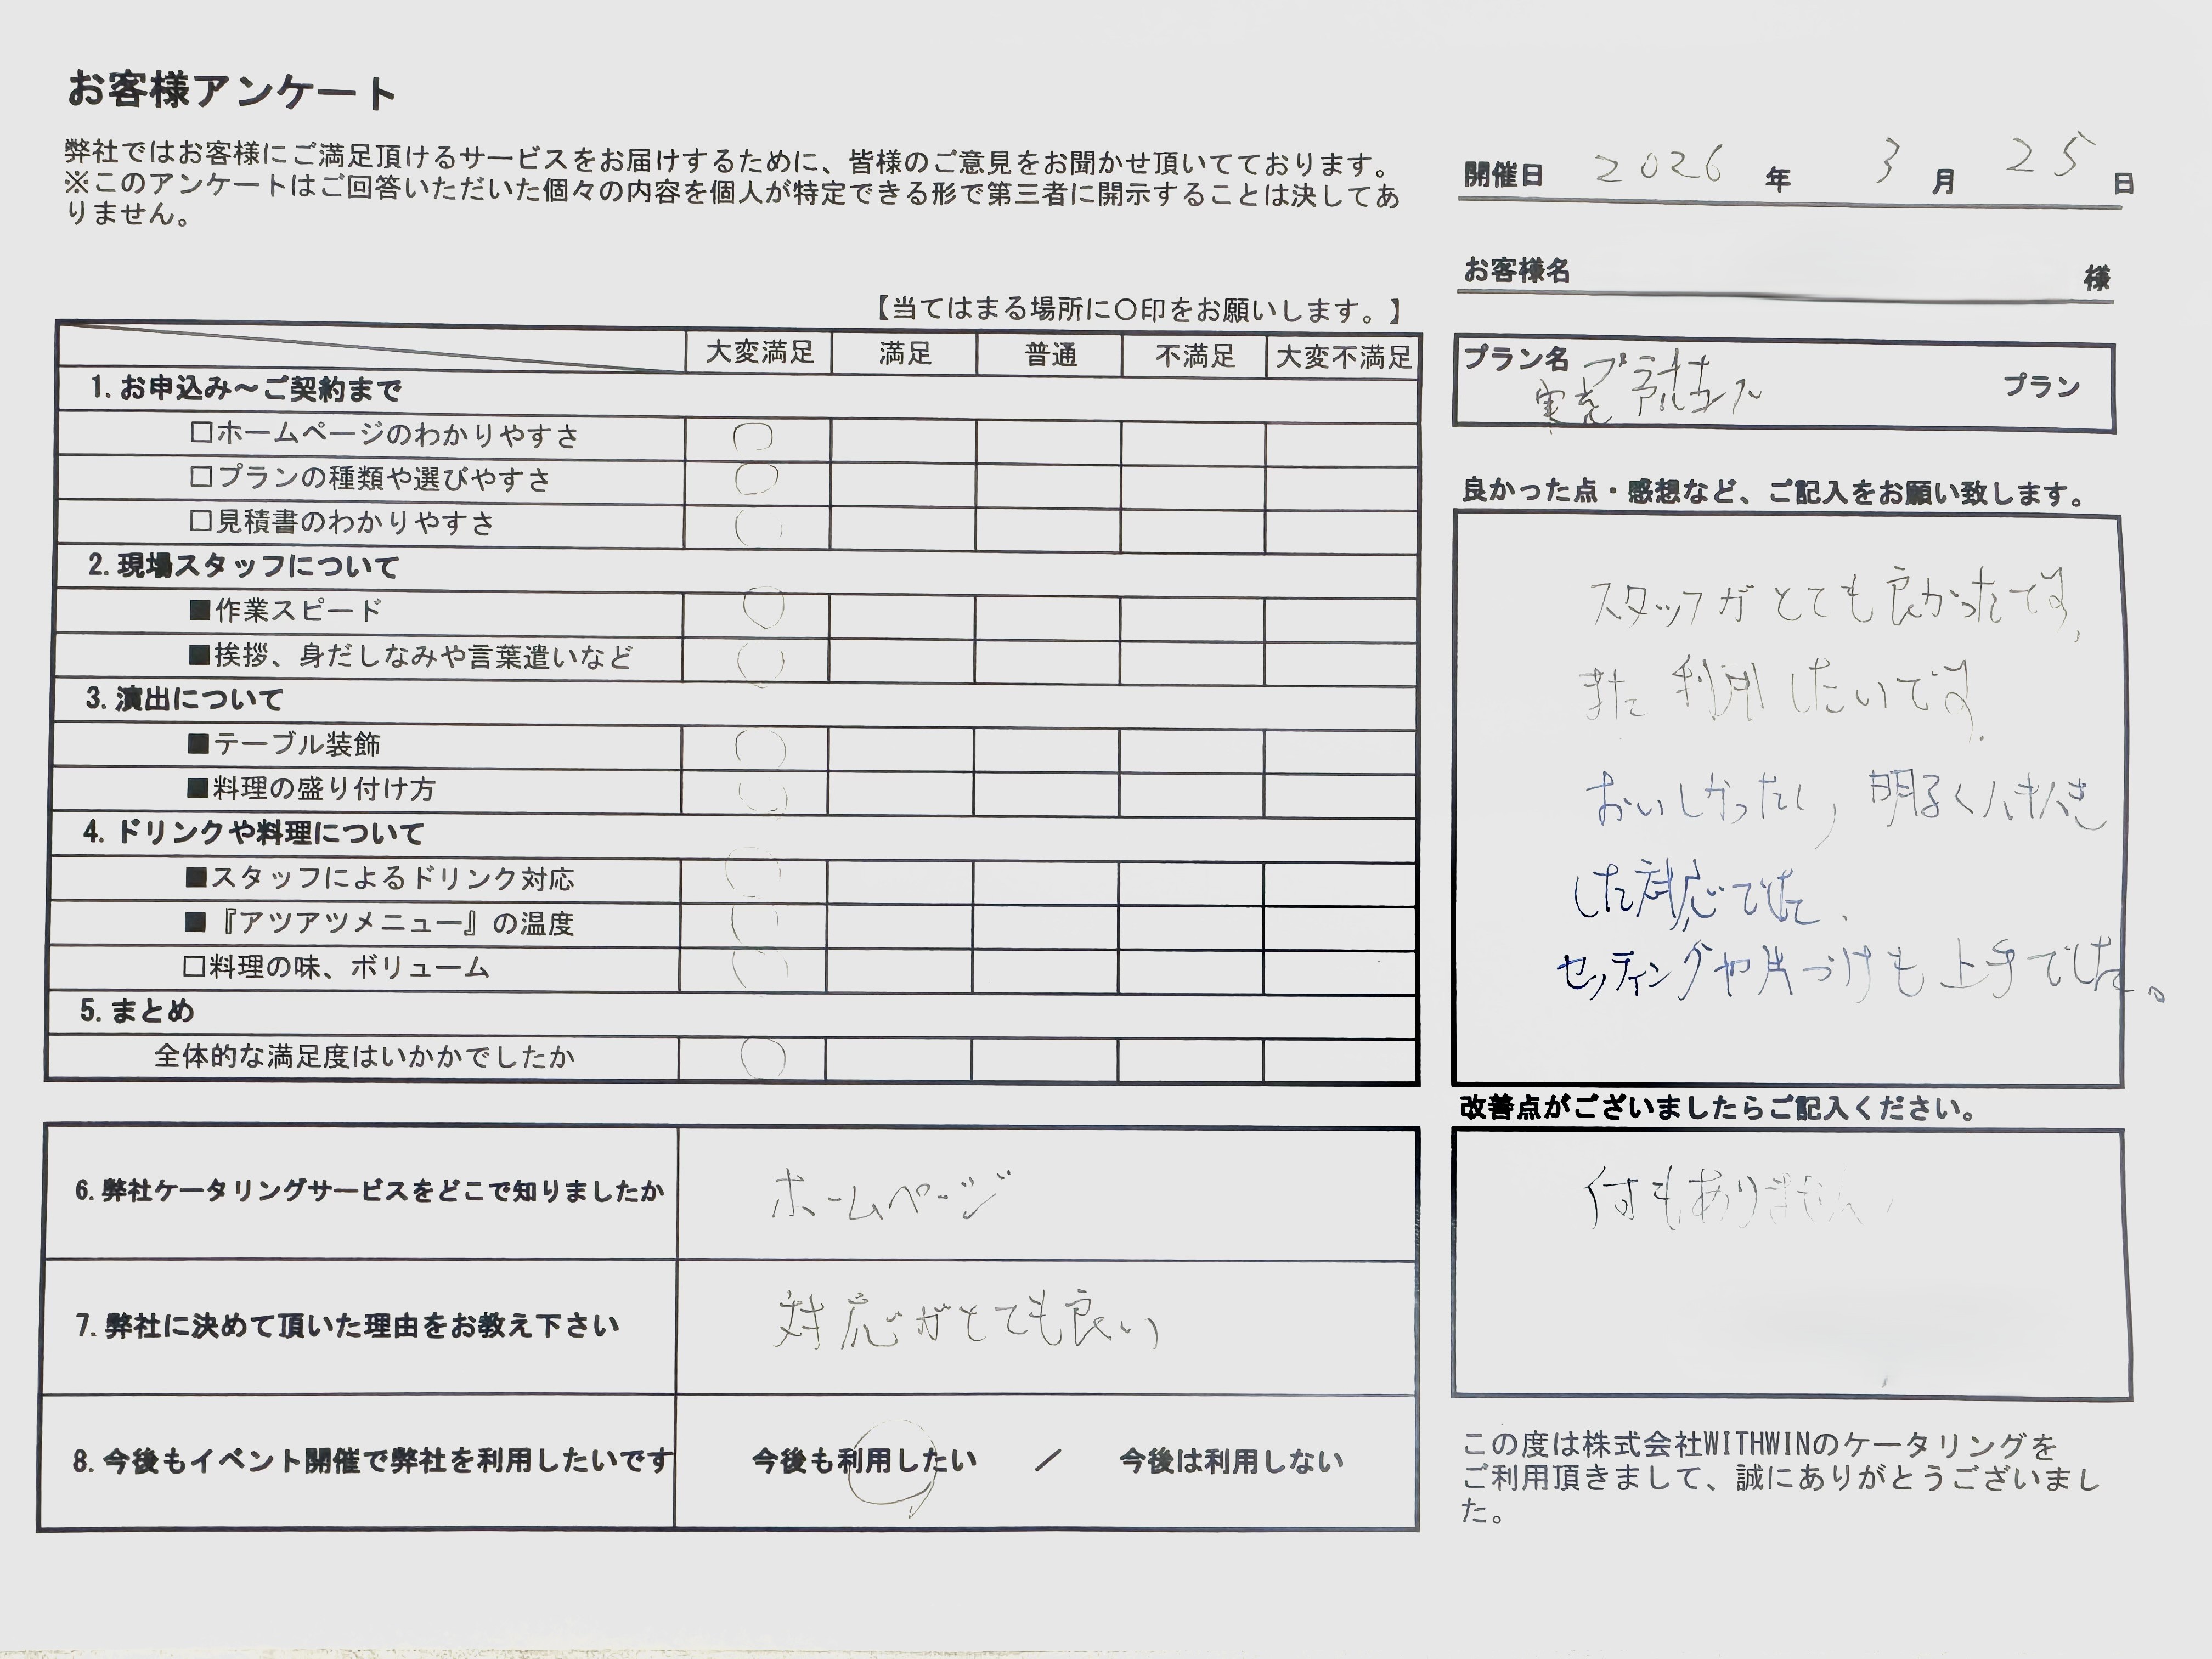 お客様アンケート
弊社ではお客様にご満足頂けるサービスをお届けするために、皆様のご意見をお聞かせ頂いてております。
※このアンケートはご回答いただいた個々の内容を個人が特定できる形で第三者に開示することは決してあ
りません。
開催日 2026 年 3 月 25 日
お客様名 様
【当てはまる場所に〇印をお願いします。】
大変満足 満足 普通 不満足 大変不満足
1. お申込み～ご契約まで
□ホームページのわかりやすさ ○
□プランの種類や選びやすさ ○
□見積書のわかりやすさ ○
2. 現場スタッフについて
■作業スピード ○
■挨拶、身だしなみや言葉遣いなど ○
3. 演出について
■テーブル装飾 ○
■料理の盛り付け方 ○
4. ドリンクや料理について
■スタッフによるドリンク対応 ○
■『アツアツメニュー』の温度 ○
□料理の味、ボリューム ○
5. まとめ
全体的な満足度はいかかでしたか ○
プラン名 プラン
良かった点・感想など、ご記入をお願い致します。
スタッフがとても良かったです、
また利用したいです.
おいしかったし，明るくハキハキ
した対応でした.
セッティングや片づけも上手でした。
改善点がございましたらご記入ください。
何もありません
6. 弊社ケータリングサービスをどこで知りましたか ホームページ
7. 弊社に決めて頂いた理由をお教え下さい 対応がとても良い
8. 今後もイベント開催で弊社を利用したいです 今後も利用したい ／ 今後は利用しない
この度は株式会社WITHWINのケータリングを
ご利用頂きまして、誠にありがとうございまし
た。